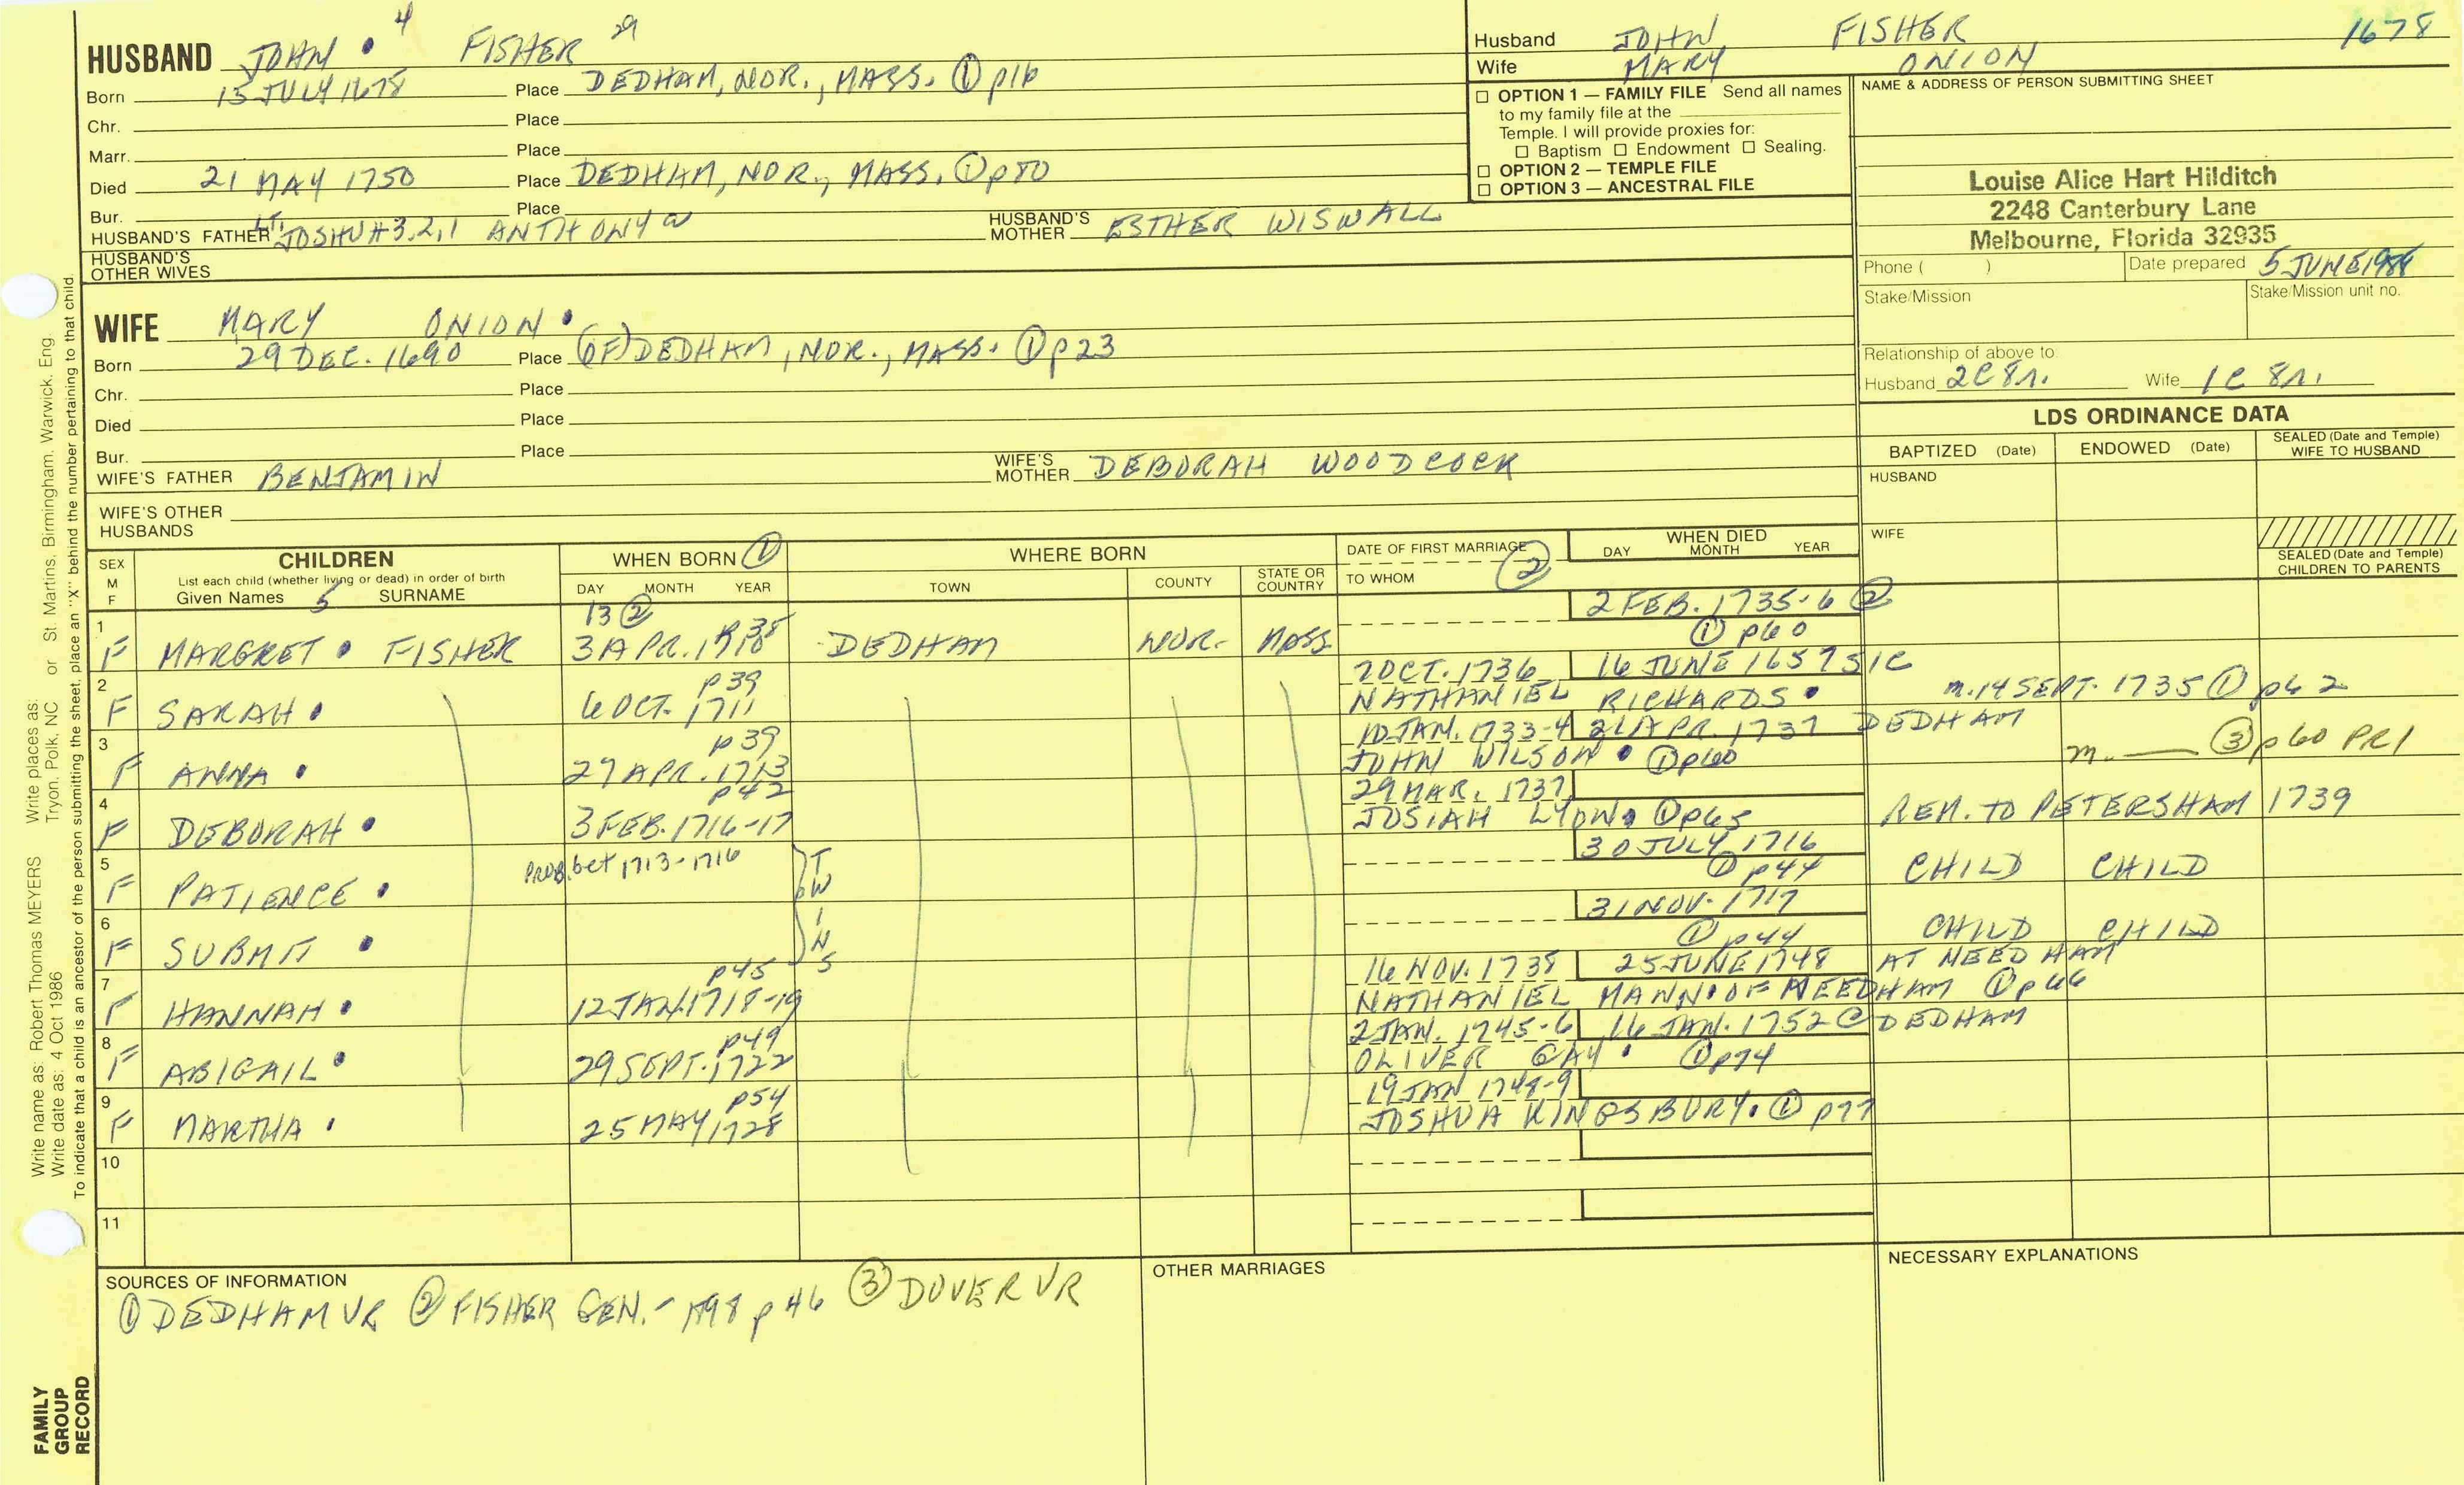 HUSBAND JOHN • 4 FISHER 29
Born 15 JULY 1678 Place DEDHAM, NOR., MASS. ① p16
Chr. Place
Marr. Place
Died 21 MAY 1750 Place DEDHAM, NOR., MASS. ① p80
Bur. Place
HUSBAND'S FATHER LT. JOSHUA 3,2,1 ANTHONY HUSBAND'S MOTHER ESTHER WISWALL
HUSBAND'S OTHER WIVES
WIFE MARY ONION •
Born 29 DEC. 1690 Place (OF) DEDHAM, NOR., MASS. ① p23
Chr. Place
Died Place
Bur. Place
WIFE'S FATHER BENJAMIN WIFE'S MOTHER DEBORAH WOODCOCK
WIFE'S OTHER HUSBANDS
Husband JOHN FISHER 1678
Wife MARY ONION
☐ OPTION 1 — FAMILY FILE Send all names
to my family file at the
Temple. I will provide proxies for:
☐ Baptism ☐ Endowment ☐ Sealing.
☐ OPTION 2 — TEMPLE FILE
☐ OPTION 3 — ANCESTRAL FILE
NAME & ADDRESS OF PERSON SUBMITTING SHEET
Louise Alice Hart Hilditch
2248 Canterbury Lane
Melbourne, Florida 32935
Phone ( ) Date prepared 5 JUNE
Stake/Mission Stake/Mission unit no.
Relationship of above to:
Husband 2C 8r. Wife 1C 8r.
LDS ORDINANCE DATA
BAPTIZED (Date) ENDOWED (Date) SEALED (Date and Temple) WIFE TO HUSBAND
HUSBAND
WIFE
SEALED (Date and Temple) CHILDREN TO PARENTS
SEX M F
CHILDREN
List each child (whether living or dead) in order of birth
Given Names 5 SURNAME
WHEN BORN ①
DAY MONTH YEAR
WHERE BORN
TOWN COUNTY STATE OR COUNTRY
DATE OF FIRST MARRIAGE ②
TO WHOM
WHEN DIED
DAY MONTH YEAR
13 ② 2 FEB. 1735-6 ②
1 F MARGRET • FISHER 3 APR. DEDHAM NOR. MASS. ① p60
p39 7 OCT. 1736 16 JUNE 1657 SIC
2 F SARAH • 6 OCT. 1711 NATHANIEL RICHARDS • m. 14 SEPT. 1735 ① p62
p39 10 JAN. 1733-4 21 APR. 1737 DEDHAM
3 F ANNA • 27 APR. 1713 JOHN WILSON • ① p60 m. ③ p60 PR1
p42 29 MAR. 1737
4 F DEBORAH • 3 FEB. 1716-17 JOSIAH LYON • ① p65 REM. TO PETERSHAM 1739
PROB. bet 1713-1716 30 JULY 1716
5 F PATIENCE • TWINS ① p44 CHILD CHILD
31 NOV. 1717
6 F SUBMIT • ① p44 CHILD CHILD
p45 16 NOV. 1738 25 JUNE 1748 AT NEEDHAM
7 F HANNAH • 12 JAN. 1718-19 NATHANIEL MANN • OF NEEDHAM ① p66
p49 2 JAN. 1745-6 16 JAN. 1752 @ DEDHAM
8 F ABIGAIL • 29 SEPT. 1722 OLIVER GAY • ① p74
p54 19 JAN 1748-9
9 F MARTHA • 25 MAY 1728 JOSHUA KINGSBURY • ① p77
10
11
SOURCES OF INFORMATION
① DEDHAM VR ② FISHER GEN. - 1898 p 46 ③ DOVER VR
OTHER MARRIAGES
NECESSARY EXPLANATIONS
Write name as: Robert Thomas MEYERS Write places as: Tryon, Polk, NC or St. Martins, Birmingham, Warwick, Eng.
Write date as: 4 Oct 1986
To indicate that a child is an ancestor of the person submitting the sheet, place an "X" behind the number pertaining to that child.
FAMILY
GROUP
RECORD